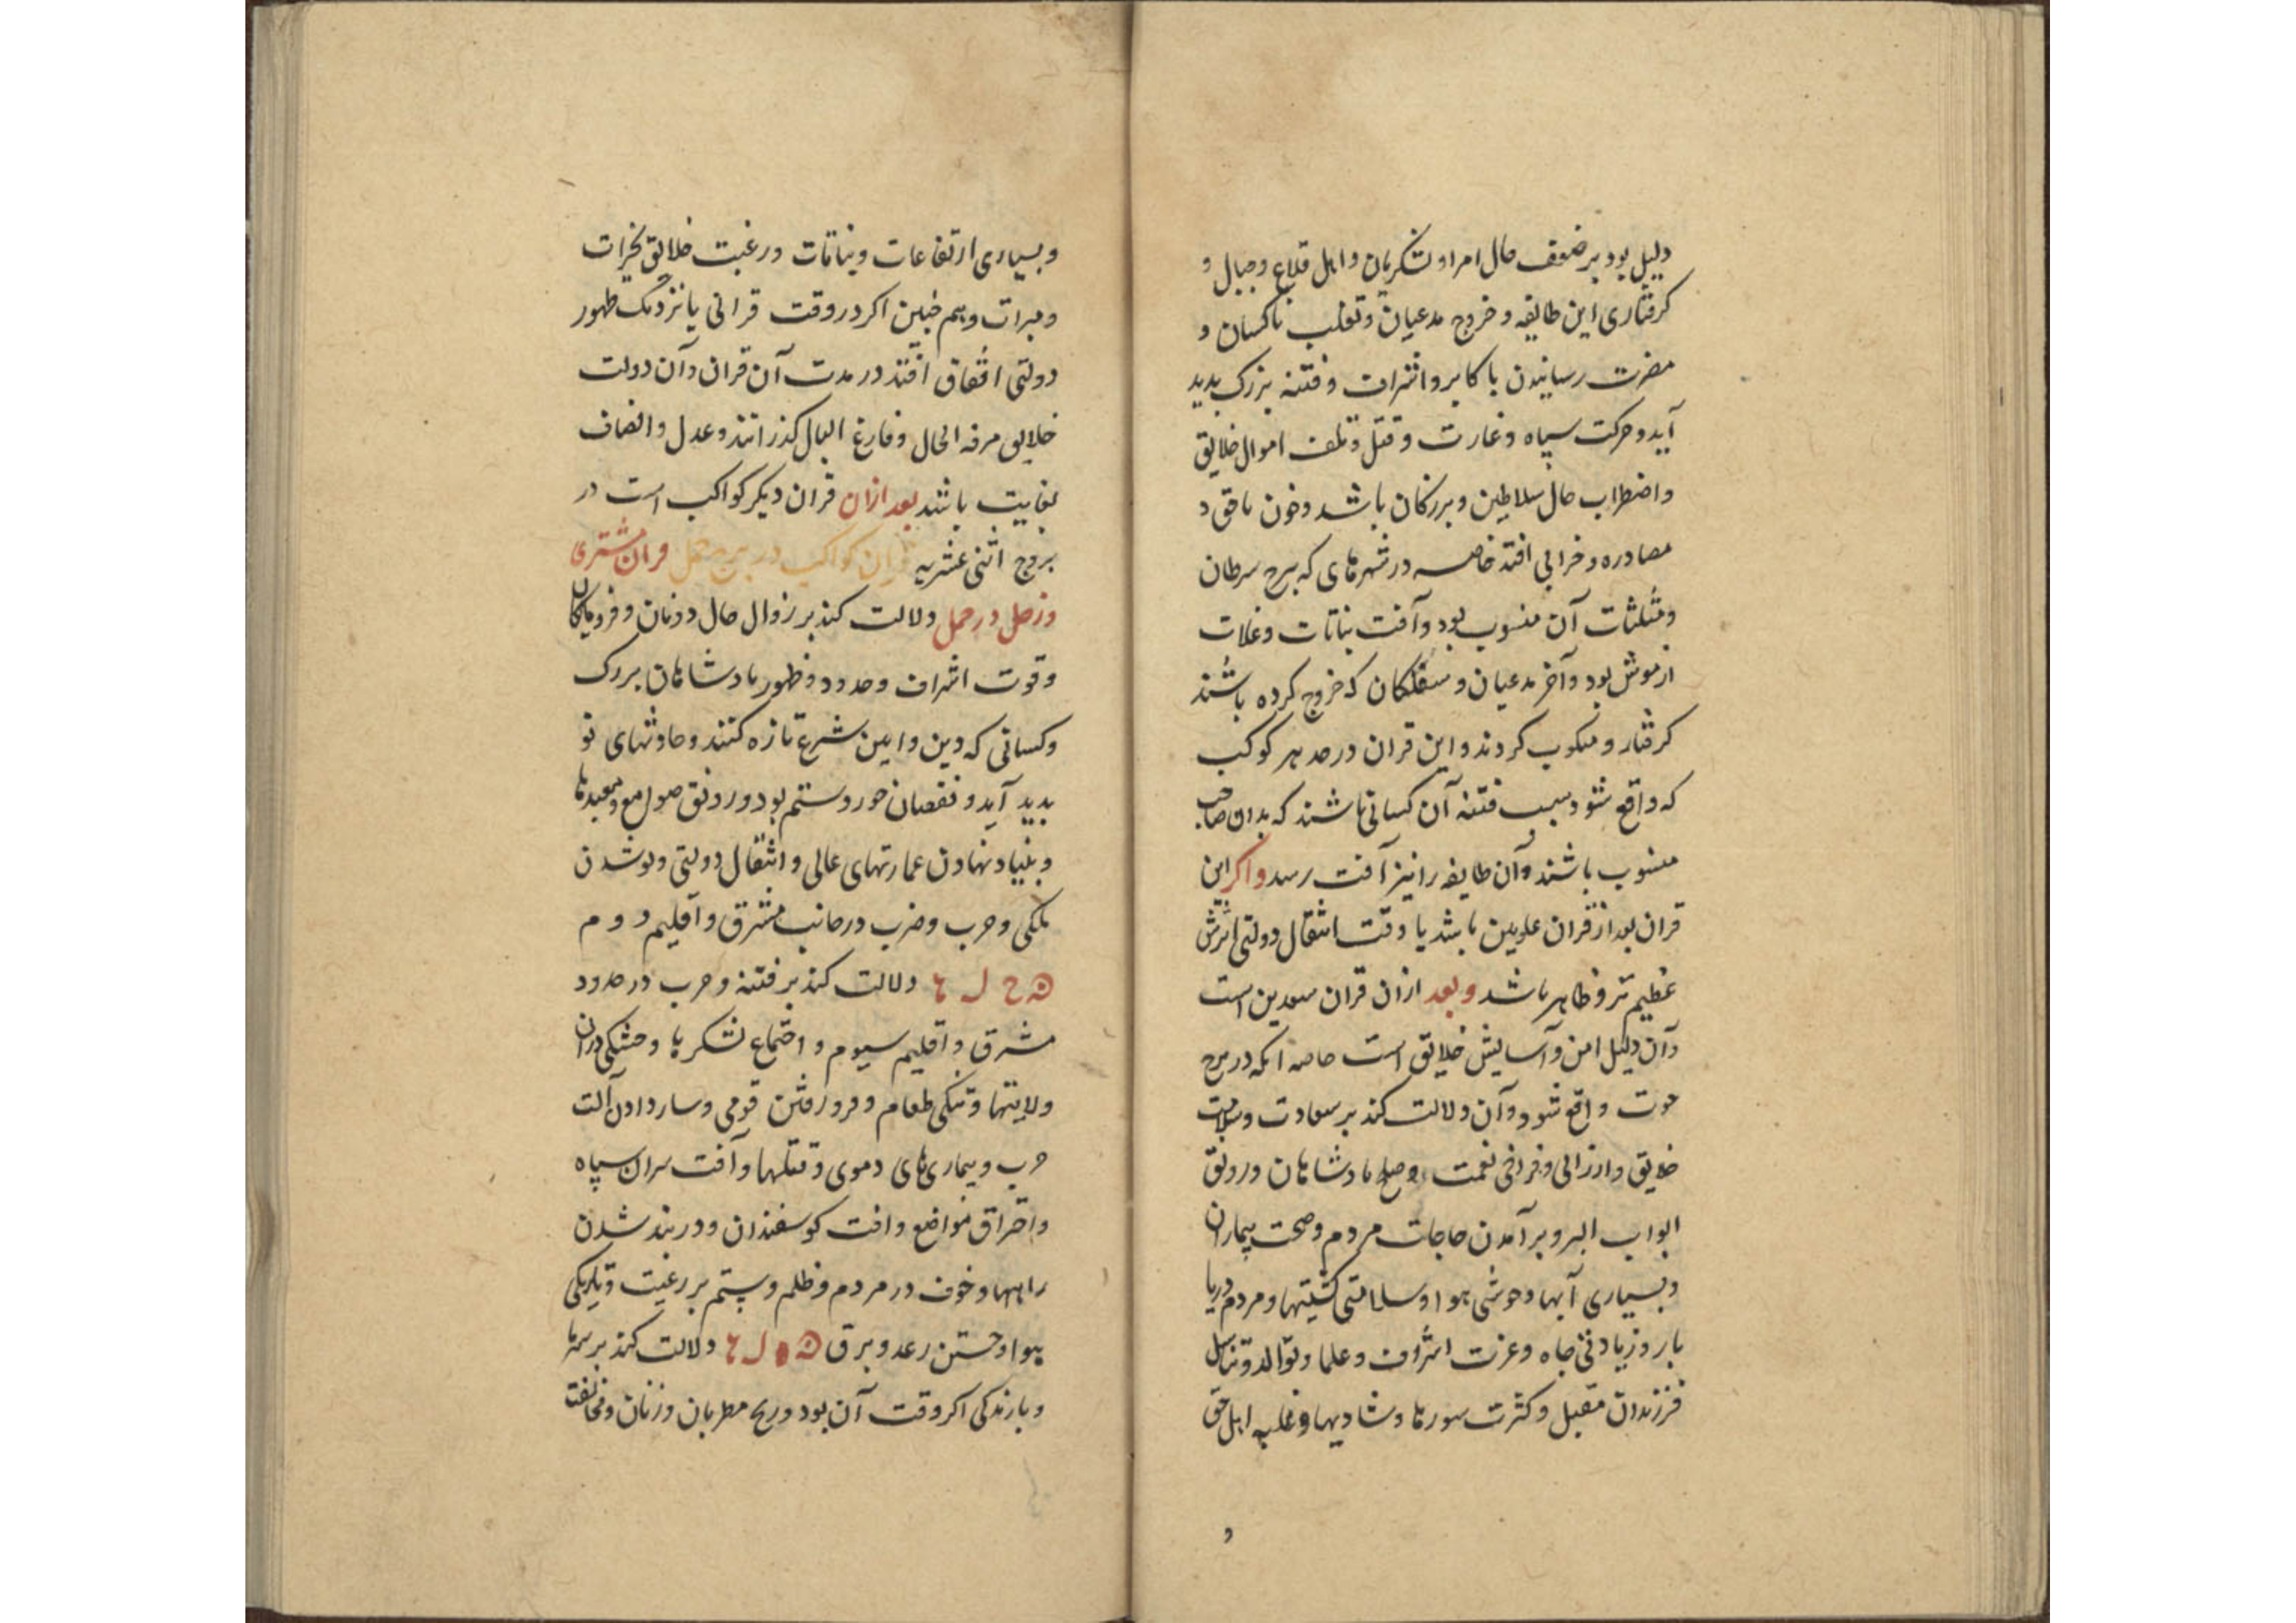 دلیل بود بر ضعف حال امرا و لشکریان و اهل قلاع و جبال و
کرفتاری این طایفه و خروج مدعیان و تغلب ناکسان و
مضرت رسانیدن با کابر و اشراف و فتنه بزرک پدید
آید و حرکت سپاه و غارت و قتل و تلف اموال خلایق
و اضطراب حال سلاطین و بزرکان باشد و خون ناحق و
مصادره و خرابی افتد خاصه در شهرهای که ببرج سرطان
و مثلثات آن منسوب بود و آفت نباتات و غلات
از موش بود و آخر مدعیان و سفلکان که خروج کرده باشند
کرفتار و منکوب کردند و این قران در حد هر کوکب
که واقع شود سبب فتنه آن کسانی باشند که بدان صاحب
منسوب باشند و آن طایفه را نیز آفت رسد و اکر این
قران بعد از قران علویین باشد یا وقت انتقال دولتی اثرش
عظیم تر و ظاهر باشد و بعد ازان قران سعدین است
و آن دلیل امن و آسایش خلایق است خاصه آنکه در برج
حوت واقع شود و آن دلالت کند بر سعادت و سلامت
خلایق و ارزانی و فراخی نعمت و صلح پادشاهان و رونق
ابواب البر و بر آمدن حاجات مردم و صحت بیماران
و بسیاری آبها و خوشی هوا و سلامتی کشتیها و مردم دریا
بار و زیادتی جاه و عزت اشراف و علما و توالد و تناسل
فرزندان مقبل و کثرت سورها و شادیها و غلبه اهل حق
و
و بسیاری ارتفاعات و نباتات و رغبت خلایق بخیرات
و مبرات و هم چنین اکر در وقت قرانی یا نزدیک ظهور
دولتی اتفاق افتد در مدت آن قران و آن دولت
خلایق مرفه الحال و فارغ البال کذرانند و عدل و انصاف
بغایت باشد بعد ازان قران دیکر کواکب است در
بروج اثنی عشریه قران کواکب در برج حمل قران مشتری
و زحل در حمل دلالت کند بر زوال حال دونان و فرومایکان
و قوت اشراف و حدود و ظهور پادشاهان بزرک
و کسانی که دین و آیین شرع تازه کنند و حادثهای نو
پدید آید و نقصان جور و ستم بود و رونق صوامع و معبدها
و بنیاد نهادن عمارتهای عالی و انتقال دولتی و نو شدن
ملکی و حرب و ضرب در جانب مشرق و اقلیم دوم
دلالت کند بر فتنه و حرب در حدود
مشرق و اقلیم سیوم و اجتماع لشکرها و خشکی دران
ولایتها و تنکی طعام و فرو رفتن قومی و ساز دادن آلت
حرب و بیماری‌های دموی و قتلها و آفت سران سپاه
و احتراق مواضع و آفت کوسفندان و در بند شدن
راهها و خوف در مردم و ظلم و ستم بر رعیت و تاریکی
هوا و جستن رعد و برق دلالت کند بر سرما
و بارندکی اکر وقت آن بود و رنج مطربان و زنان و مخالفت